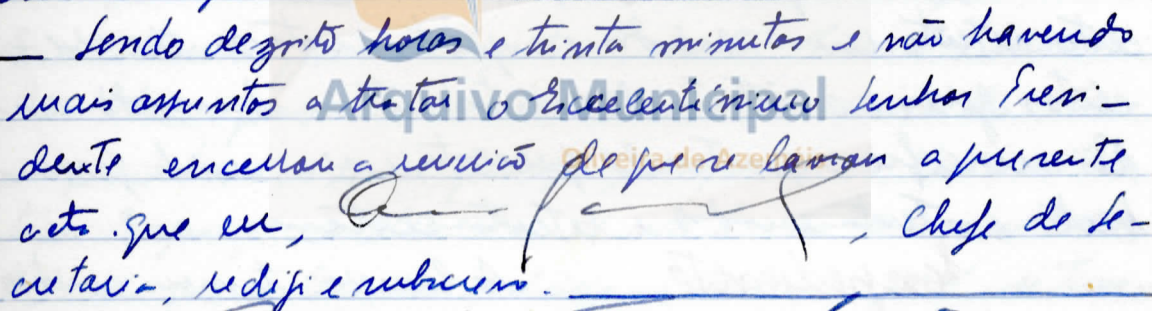 — Sendo dezoito horas e trinta minutos e não havendo
mais assuntos a tratar o Excelentíssimo Senhor Presi-
dente encerrou a reunião de que se lavrou a presente
acta. que eu, , Chefe de Se-
cretaria, redigi e subscrevo.
Arquivo Municipal
Oliveira de Azeméis